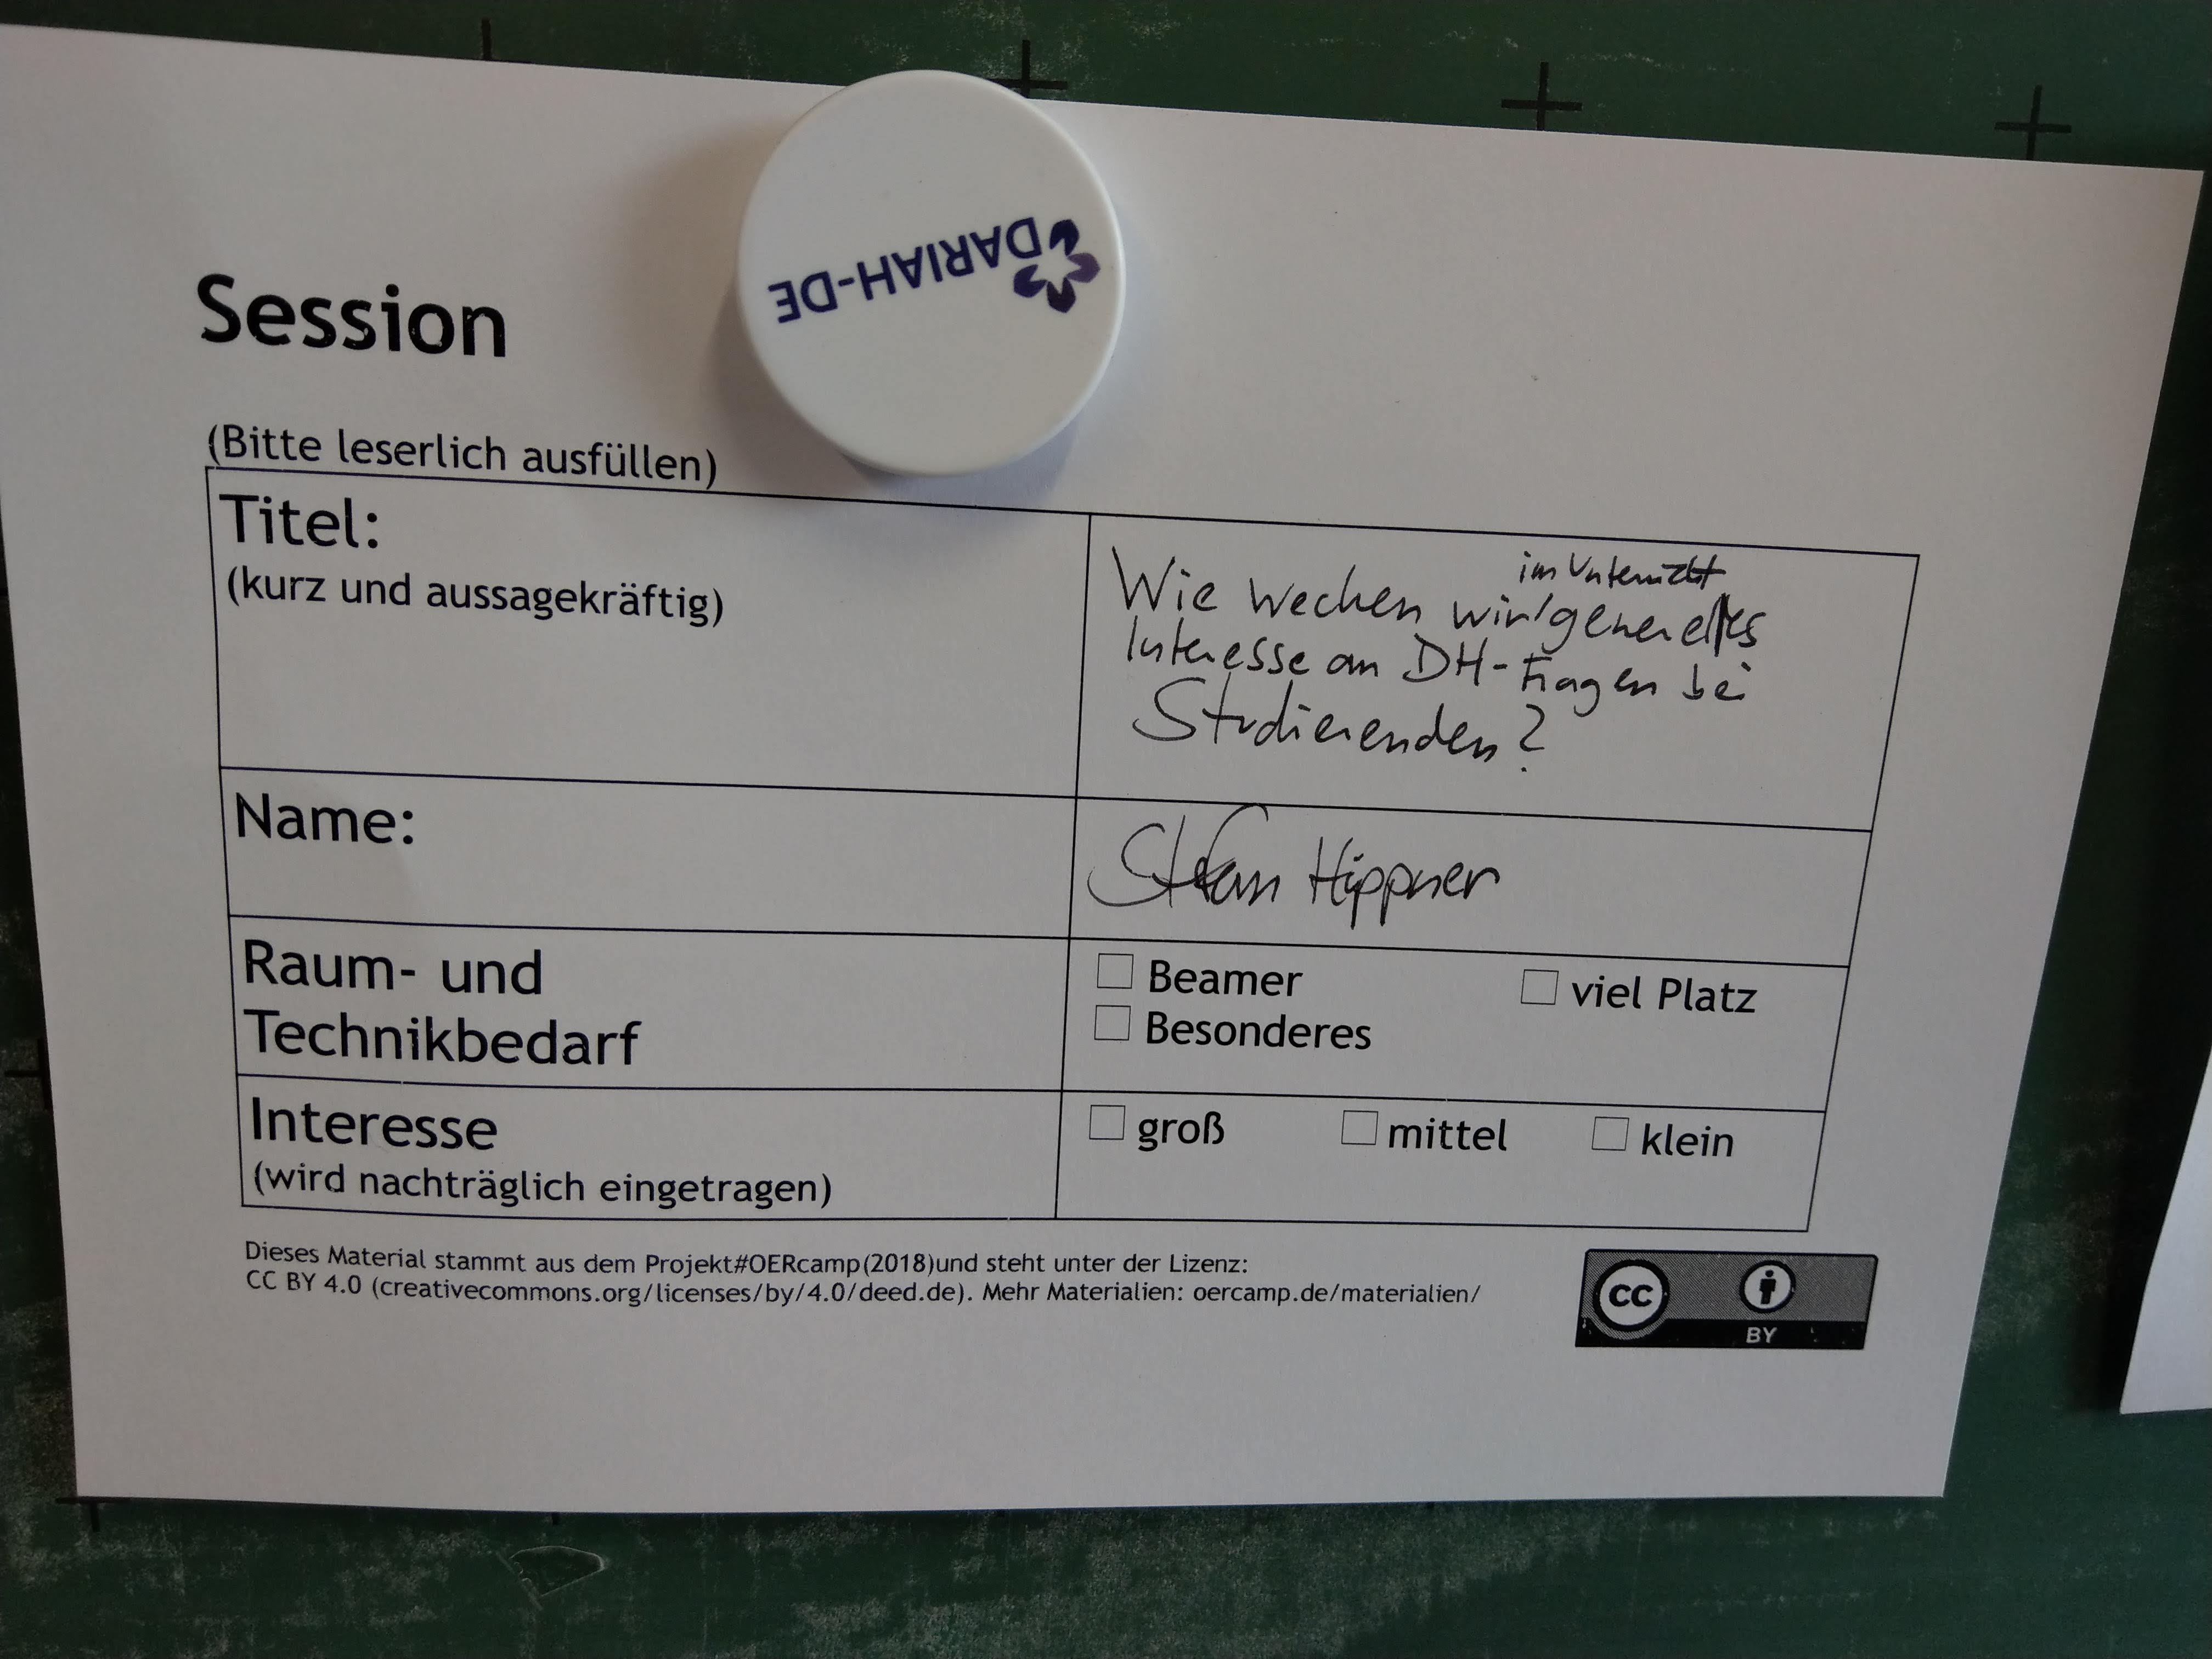 DARIAH-DE
Session
(Bitte leserlich ausfüllen)
Titel:
(kurz und aussagekräftig)
im Unterricht
Wie wecken wir/generelles
Interesse an DH-Fragen bei
Studierenden?
Name:
Stefan Hippner
Raum- und
Technikbedarf
Beamer
viel Platz
Besonderes
Interesse
(wird nachträglich eingetragen)
groß mittel klein
Dieses Material stammt aus dem Projekt#OERcamp(2018)und steht unter der Lizenz:
CC BY 4.0 (creativecommons.org/licenses/by/4.0/deed.de). Mehr Materialien: oercamp.de/materialien/
CC
BY